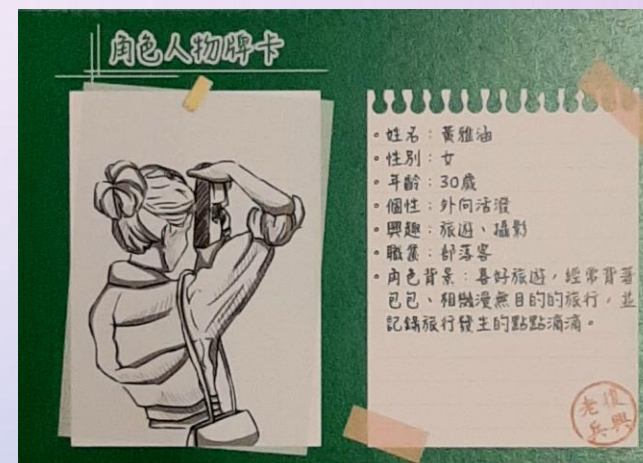 角色人物牌卡
• 姓名：黃雅油
• 性別：女
• 年齡：30歲
• 個性：外向活潑
• 興趣：旅遊、攝影
• 職業：部落客
• 角色背景：喜好旅遊，經常背著
包包、相機漫無目的的旅行，並
記錄旅行發生的點點滴滴。
老復
兵興